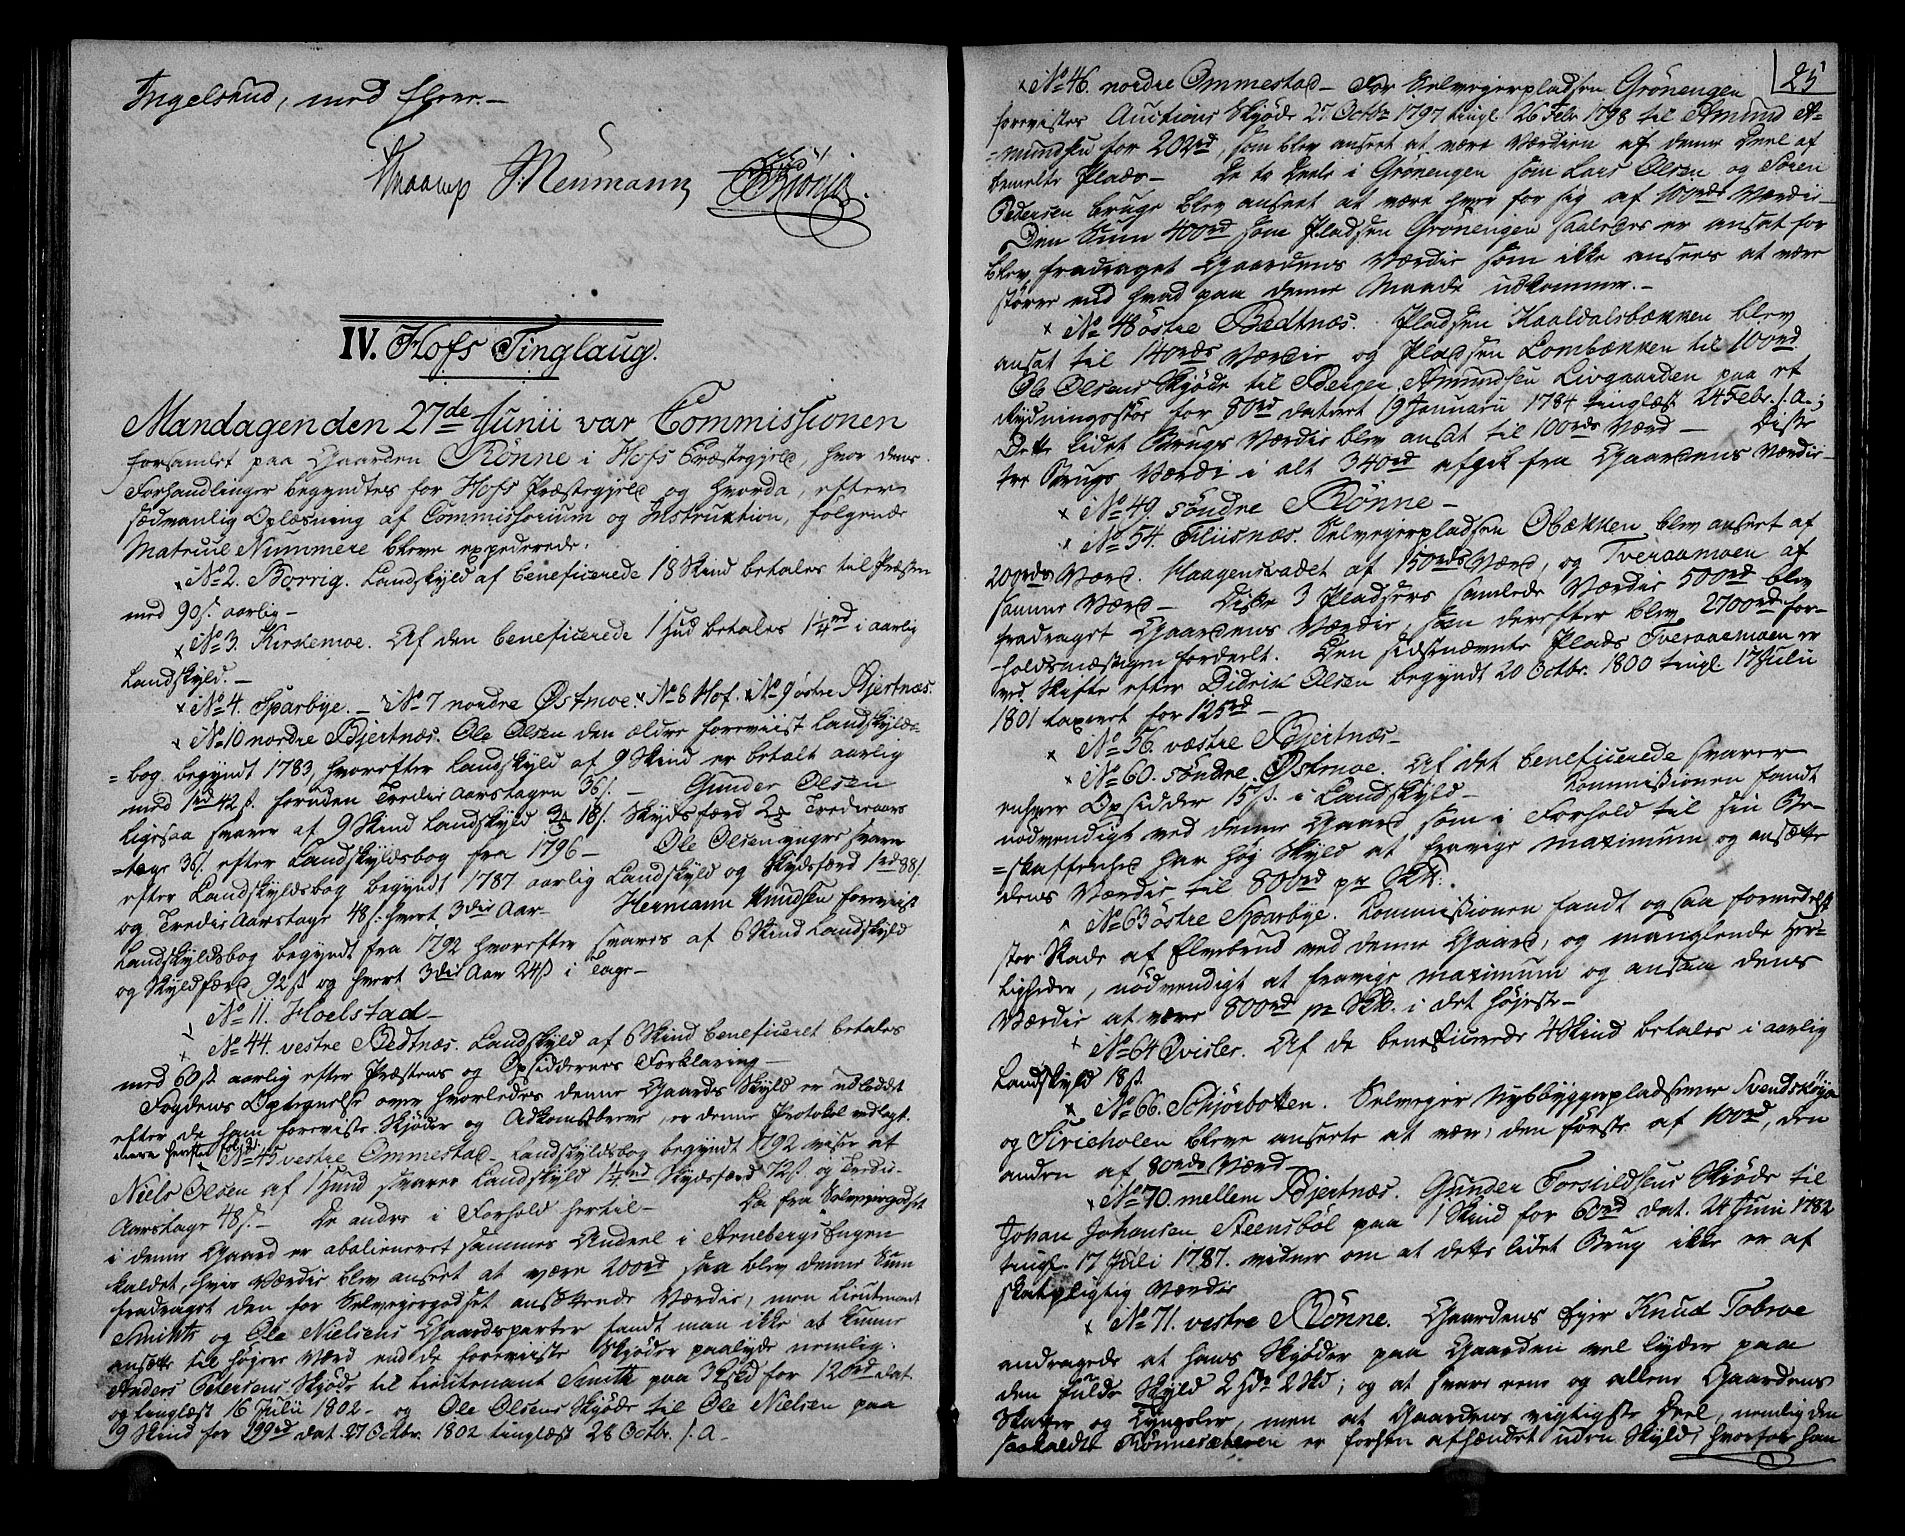 Ingelsrud, med flere.—
Knaarup Neumann
IV. Hofs Tinglaug.
Mandagen den 27de Junii var Commissionen
forsamlet paa Gaarden Rönne i Hofs Præstegjeld, hvor dens
Forhandlinger begyndtes for Hofs Præstegjeld og hvorda, efter
sædvanlig Oplæsning af Commissorium og Instruction, følgende
Matricul Nummere bleve expederede:
× No 2. Borrig. Landskyld af beneficerede 18 Skind betales til Præsten
med 90 s. aarlig—
× No 3. Kirkemoe. Af den beneficerede 1 Hud betales 1¼ rd i aarlig
Landskyld.—
× No 4. Sparbye.— No 7 nordre Østmoe. × No 8 Hof. × No 9 østre Bjertnæs.
× No 10 nordre Bjertnæs. Ole Olsen den ældre foreviist Landskylds-
=bog begyndt 1783, hvorefter Landskyld af 9 Skind er betalt aarlig
med 1 rd 42 s. foruden Tredie Aarstagen 36 s.— Gunder Olsen
ligesaa svarer af 9 Skind Landskyld 18 s. Skydsfærd Tredieaars-
=tage 36 s. efter Landskyldsbog fra 1796— Ole Olsen yngre svarer
efter Landskyldsbog begyndt 1787 aarlig Landskyld og Skydsfærd 1 rd 88 s.
og Tredie Aarstage 48 s. hvert 3die Aar— Hermann Knudsen foreviist
Landskyldsbog begyndt fra 1792 hvorefter svares af 6 Skind Landskyld
og Skydsfærd 92 s. og hvert 3die Aar 24 s. i Tage—
× No 11. Hoelstad—
× No 44. vestre Bedtnæs. Landskyld af 6 Skind beneficeret betales
med 60 s. aarlig efter Præstens og Opsiddernes Forklaring—
Fogdens Optegnelse over hvorledes denne Gaards Skyld er udloddet
efter de ham foreviste Skjøder og Adkomstbreve, er denne Protokol vedlagt.
× No 45 vestre Ommestad— Landskyldsbog begyndt 1792 viser at
Niels Olsen af 1 Hud svarer Landskyld 1¼ rd Skydsfærd 72 s. og Tredie-
Aarstage 48 s.— De andre i Forhold hertil— Da fra Selveiergodset
i denne Gaard er abalieneret sammes Andeel i Arnebergs Engen
kaldet, hvis Værdie blev anseet at være 200 rd saa blev denne Sum
fradraget den for Selveiergodset ansættende Værdie, men Lieutenant
Smiths og Ole Nielsens Gaardsparter fandt man ikke at kunne
ansætte til høyere Værd end de foreviiste Skjøder paalyde nemlig:
Anders Petersens Skjøde til Lieutenant Smith paa for 120 rd dat.
og tinglæst 16 Julii 1802— og Ole Olsens Skjøde til Ole Nielsen paa
9 Skind for 199 rd dat. 27 Octbr. 1802 tinglæst 28 Octbr. s. a.—
25
× No 46. nordre Ommestad— For Selveierpladsen Grönengen
forevistes Auctions Skjøde 27 Octbr 1797 tingl. 26 Febr 1798 til Amund A-
=mundsen for 202 rd, som blev anseet at være Værdien af denne Deel af
bemelte Plads— De to Deele i Grönengen som Lars Olsen og Søren
Pedersen bruge blev anseet at være hver for sig af 100 rds Værdie—
Den Sum 400 rd som Pladsen Grönengen saaledes er ansat for
blev fradraget Gaardens Værdie som ikke ansees at være
større end hvad paa denne Maade udkommer.—
× No 48 østre Bedtnæs. Pladsen Kaaldalsbækken blev
ansat til 140 rds Værdie og Pladsen Lombækken til 100 rd
Ole Olsens Skjøde til Berger Amundsen Livgaarden paa et
Rydningsstør for 80 rd dateret 19 Januarii 1784 tinglæst 24 Febr. s. a.;
Dette lidet Brugs Værdie blev ansat til 100 rds Værd— Disse
tre Brugs Værdie i alt 340 rd afgik fra Gaardens Værdie—
× No 49. søndre Rönne—
× No 54. Fliisnæs. Selveierpladsen Obækken blev anseet af
200 rds Værd. Haagensvadet af 150 rds Værd, og Tveraamoen af
samme Værd— Disse 3 Pladsers samlede Værdie 500 rd blev
fradraget Gaardens Værdie, som derefter blev 2700 rd for-
=holdsmæssigen fordeelt. Den sidstnævnte Plads Tveraaemoen er
ved Skifte efter Didrik Olsen begyndt 20 Octbr. 1800 tingl 17 Julii
1801 taxeret for 125 rd—
× No 56. vestre Bjertnæs—
× No 60. søndre Østmoe. Af det beneficerede svarer
enhver Opsidder 15 s. i Landskyld— Kommissionen fandt
nødvendigt ved denne Gaard som i Forhold til sin Be-
=skaffenhed har høy Skyld at fravige maximum og ansætte
dens Værdie til 800 rd pr
× No 63 østre Sparbye. Kommissionen fandt ogsaa formedelst
stor Skade af Elvebrud ved denne Gaard, og manglende Her-
ligheder, nødvendigt at fravige maximum og ansaa dens
Værdie at være 800 rd pr i det høieste—
× No 64 Qvisler. Af de beneficerede 4 Skind betales i aarlig
Landskyld 18 s.
× No 66. Schjørbotten. Selveier Nybyggerpladserne Svendskøya
og Siricholen bleve anseete at være; den første af 100 rd, den
anden af 80 rds Værd—
× No 70. mellem Bjertnæs. Gunder Torkildsens Skjøde til
Johan Johansen Steensböl paa 1 Skind for 60 rd dat. 24 Juni 1782
tingl. 17 Juli 1787. vidner om at dette lidet Brug ikke er af
skatpligtig Værdie
× No 71. vestre Rönne. Gaardens Eier Knud Tobroe
andragede at hans Skjøder paa Gaarden vel lyder paa
den fulde Skyld 2 Hdr 2 Skd; og at svare ene og allene Gaardens
Skatter og Tyngsler, men at Gaardens vigtigste Deel, nemlig den
saakaldte Rönnesæteren er forhen afhændet uden Skyld, hvorfor han